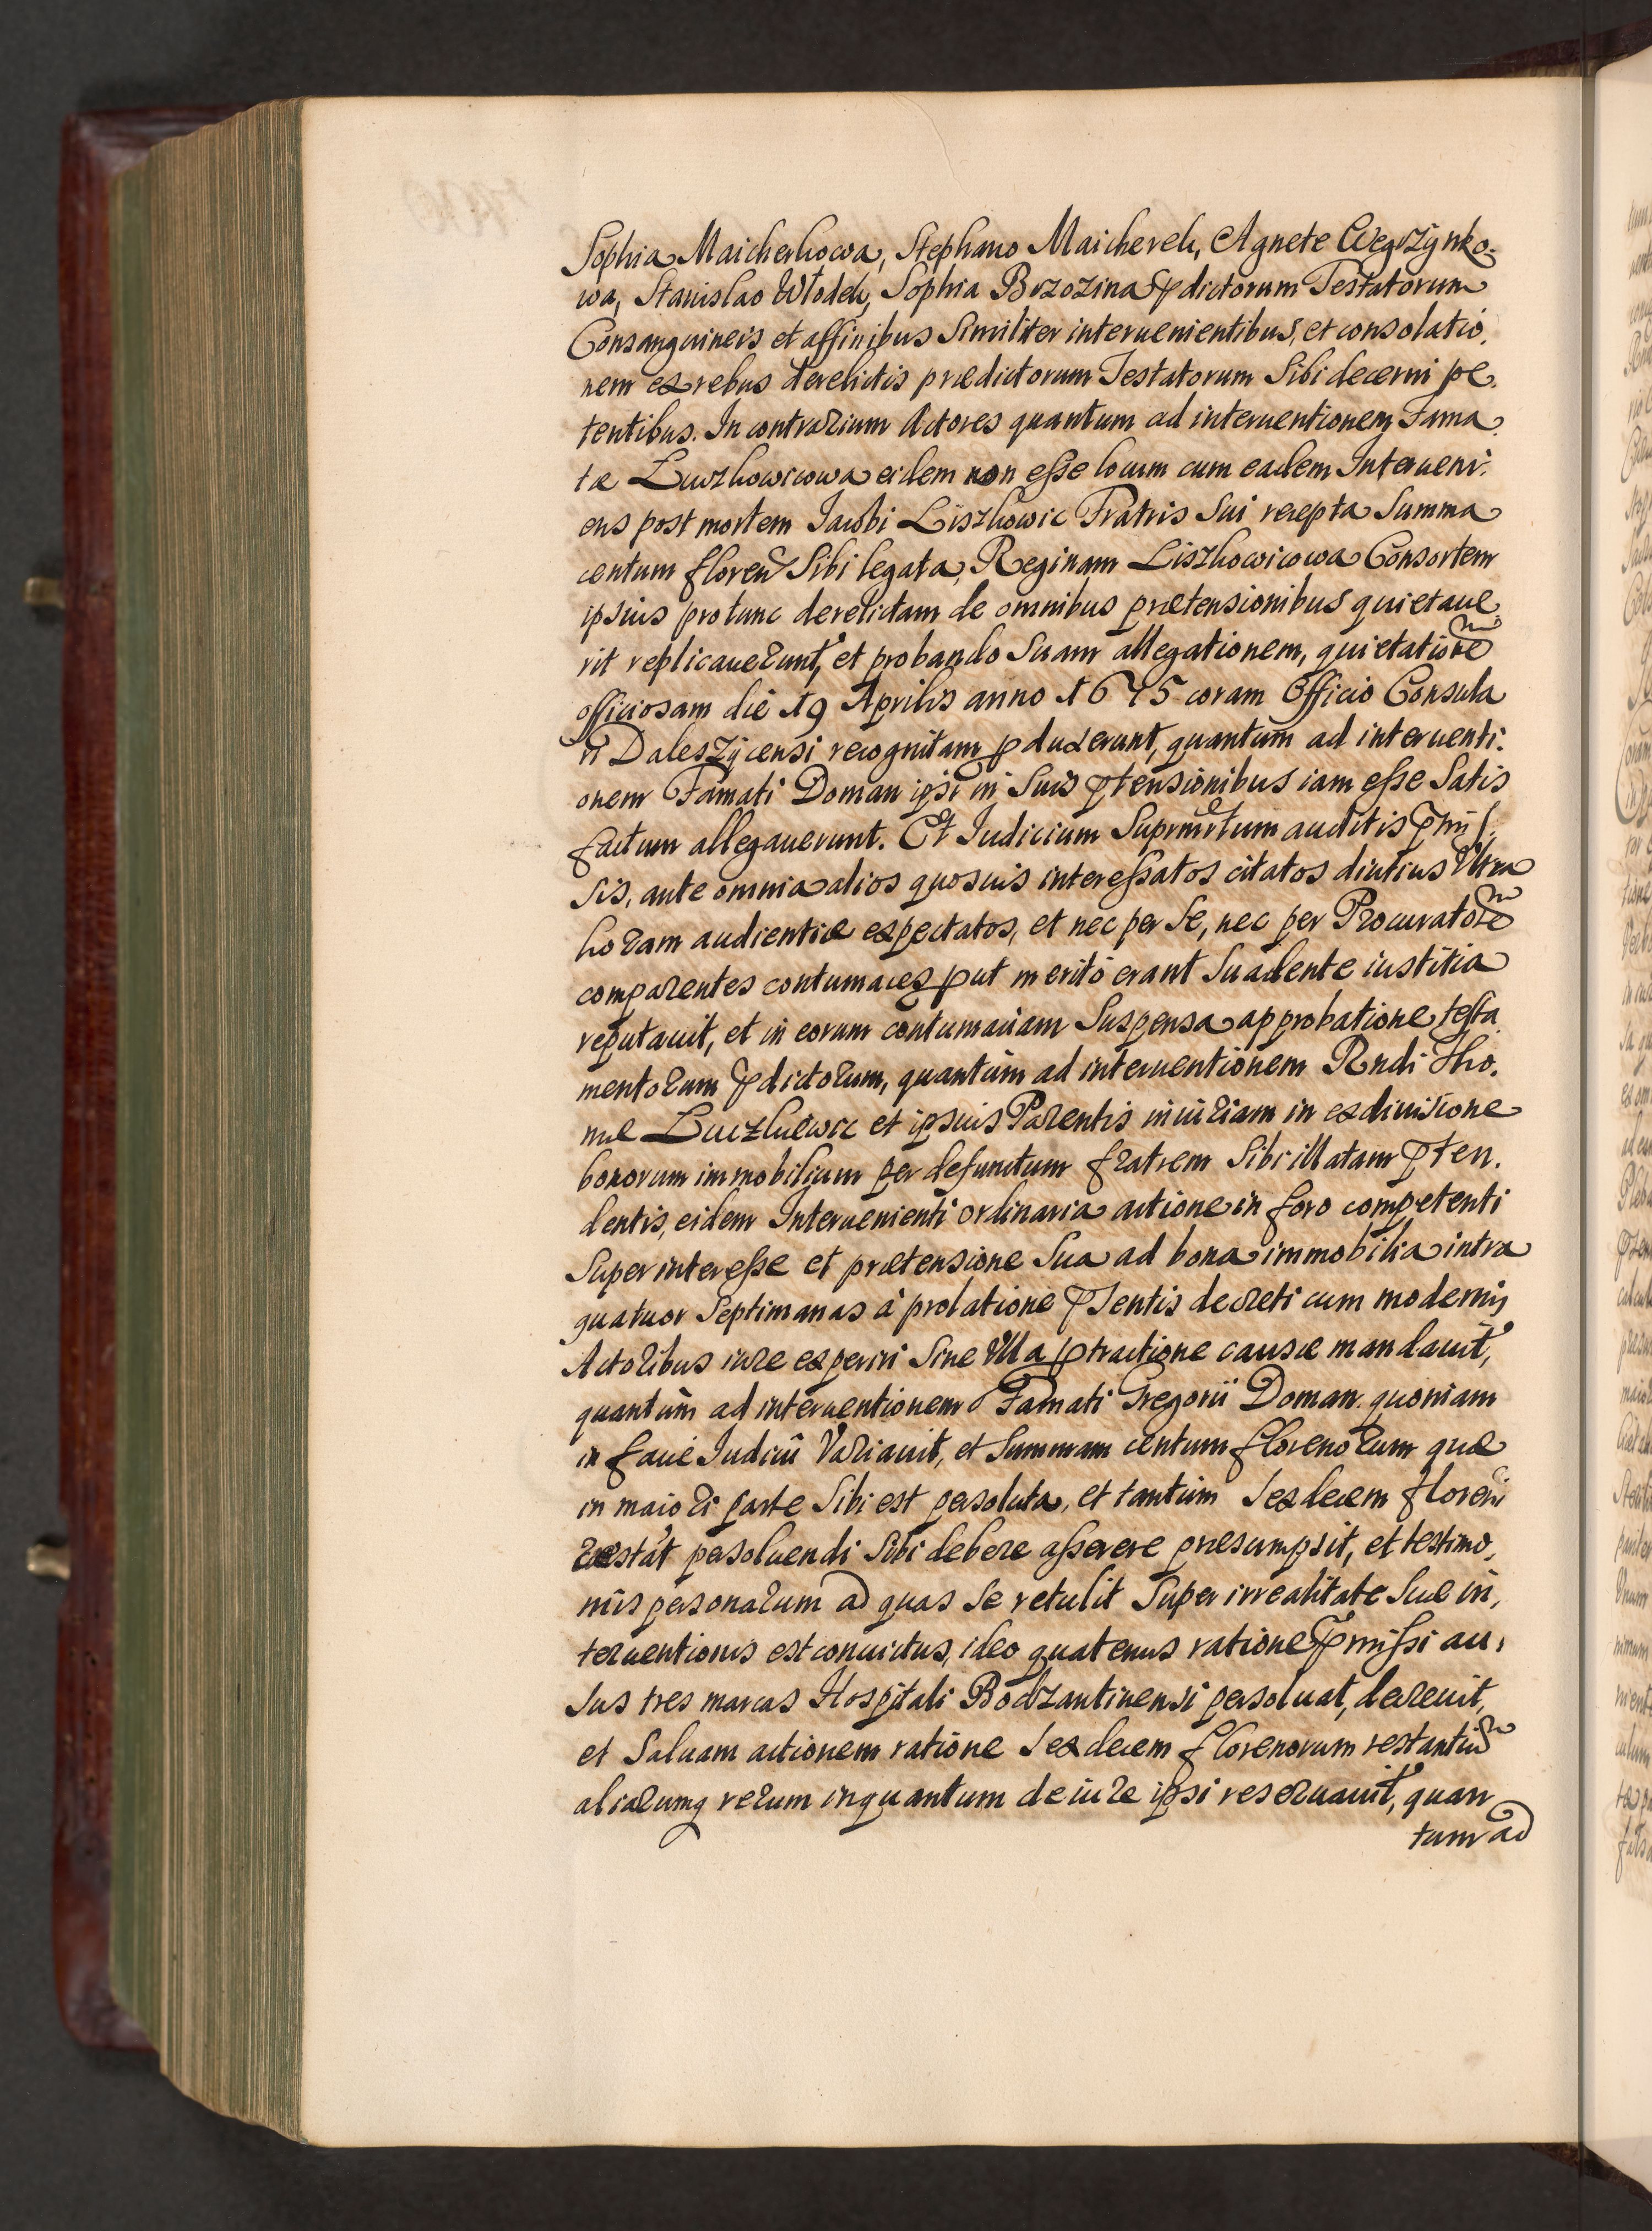 Sophia Maicherkowa, Stephano Maicherek, Agnete Węgrzynko-
wa, Stanislao Włodek, Sophia Brzozina pdictorum Testatorum
Consanguineis et affinibus Similiter interuenientibus, et consolatio.
nem ex rebus derelictis prædictorum Testatorum Sibi decerni pe.
tentibus. In contrarium Actores quantum ad interuentionem Fama.
tæ Luszkowicowa eidem non eße locum cum eadem Interueni.
ens post mortem Jacobi Liszkowic Fratris Sui recepta Summa
centum floren Sibi legata, Reginam Liszkowicowa Consortem
ipsius pro tunc derelictam de omnibus prætensionibus quietaue
rit replicauerunt, et probando Suam allegationem, quietatione
officiosam die 19 Aprilis anno 1675 coram Officio Consula
ri Daleszÿcensi recognitam pduxerunt, quantum ad interuenti.
onem Famati Doman ipsi in Suis ptensionibus iam eße Satis
factum allegauerunt. Et Iudicium Supremum auditis pmis
sis, ante omnia alios quosuis intereßatos citatos diutius Ultra
horam audientiæ expectatos, et nec per Se, nec per Procuratore
comparentes contumaces put meritò erant Suadente iustitia
reputauit, et in eorum contumaciam Suspensa approbatione testa
mentorum pdictorum, quantùm ad interuentionem Rndi Tho.
mæ Luszkiewic et ipsius Parentis iniuriam in exdiuisione
bonorum immobilium per defunctum fratrem Sibi illatam pten.
dentis, eidem Interuenienti ordinaria actione in foro competenti
Super intereße et prætensione Sua ad bona immobilia intra
quatuor Septimanas à prolatione psentis decreti cum modernis
Actoribus iure experiri Sine Vlla ptractione causæ mandauit,
quantùm ad interuentionem Famati Gregorii Doman quoniam
in facie Iudicii Variauit, et Summam centum florenorum quæ
in maiori parte Sibi est persoluta, et tantùm Sexdecem floreni
restat persoluendi Sibi debere aßerere præsumpsit, et testimo,
niis personarum ad quas Se retulit Super irrealitate Suæ in,
teruentionis est conuictus, ideo quatenus ratione pmißi au,
sus tres marcas Hospitali Bodzantinensi persoluat, decreuit,
et Saluam actionem ratione Sexdecem florenorum restantiu
aliarumq rerum inquantum de iure ipsi reseruauit, quan
tum ad